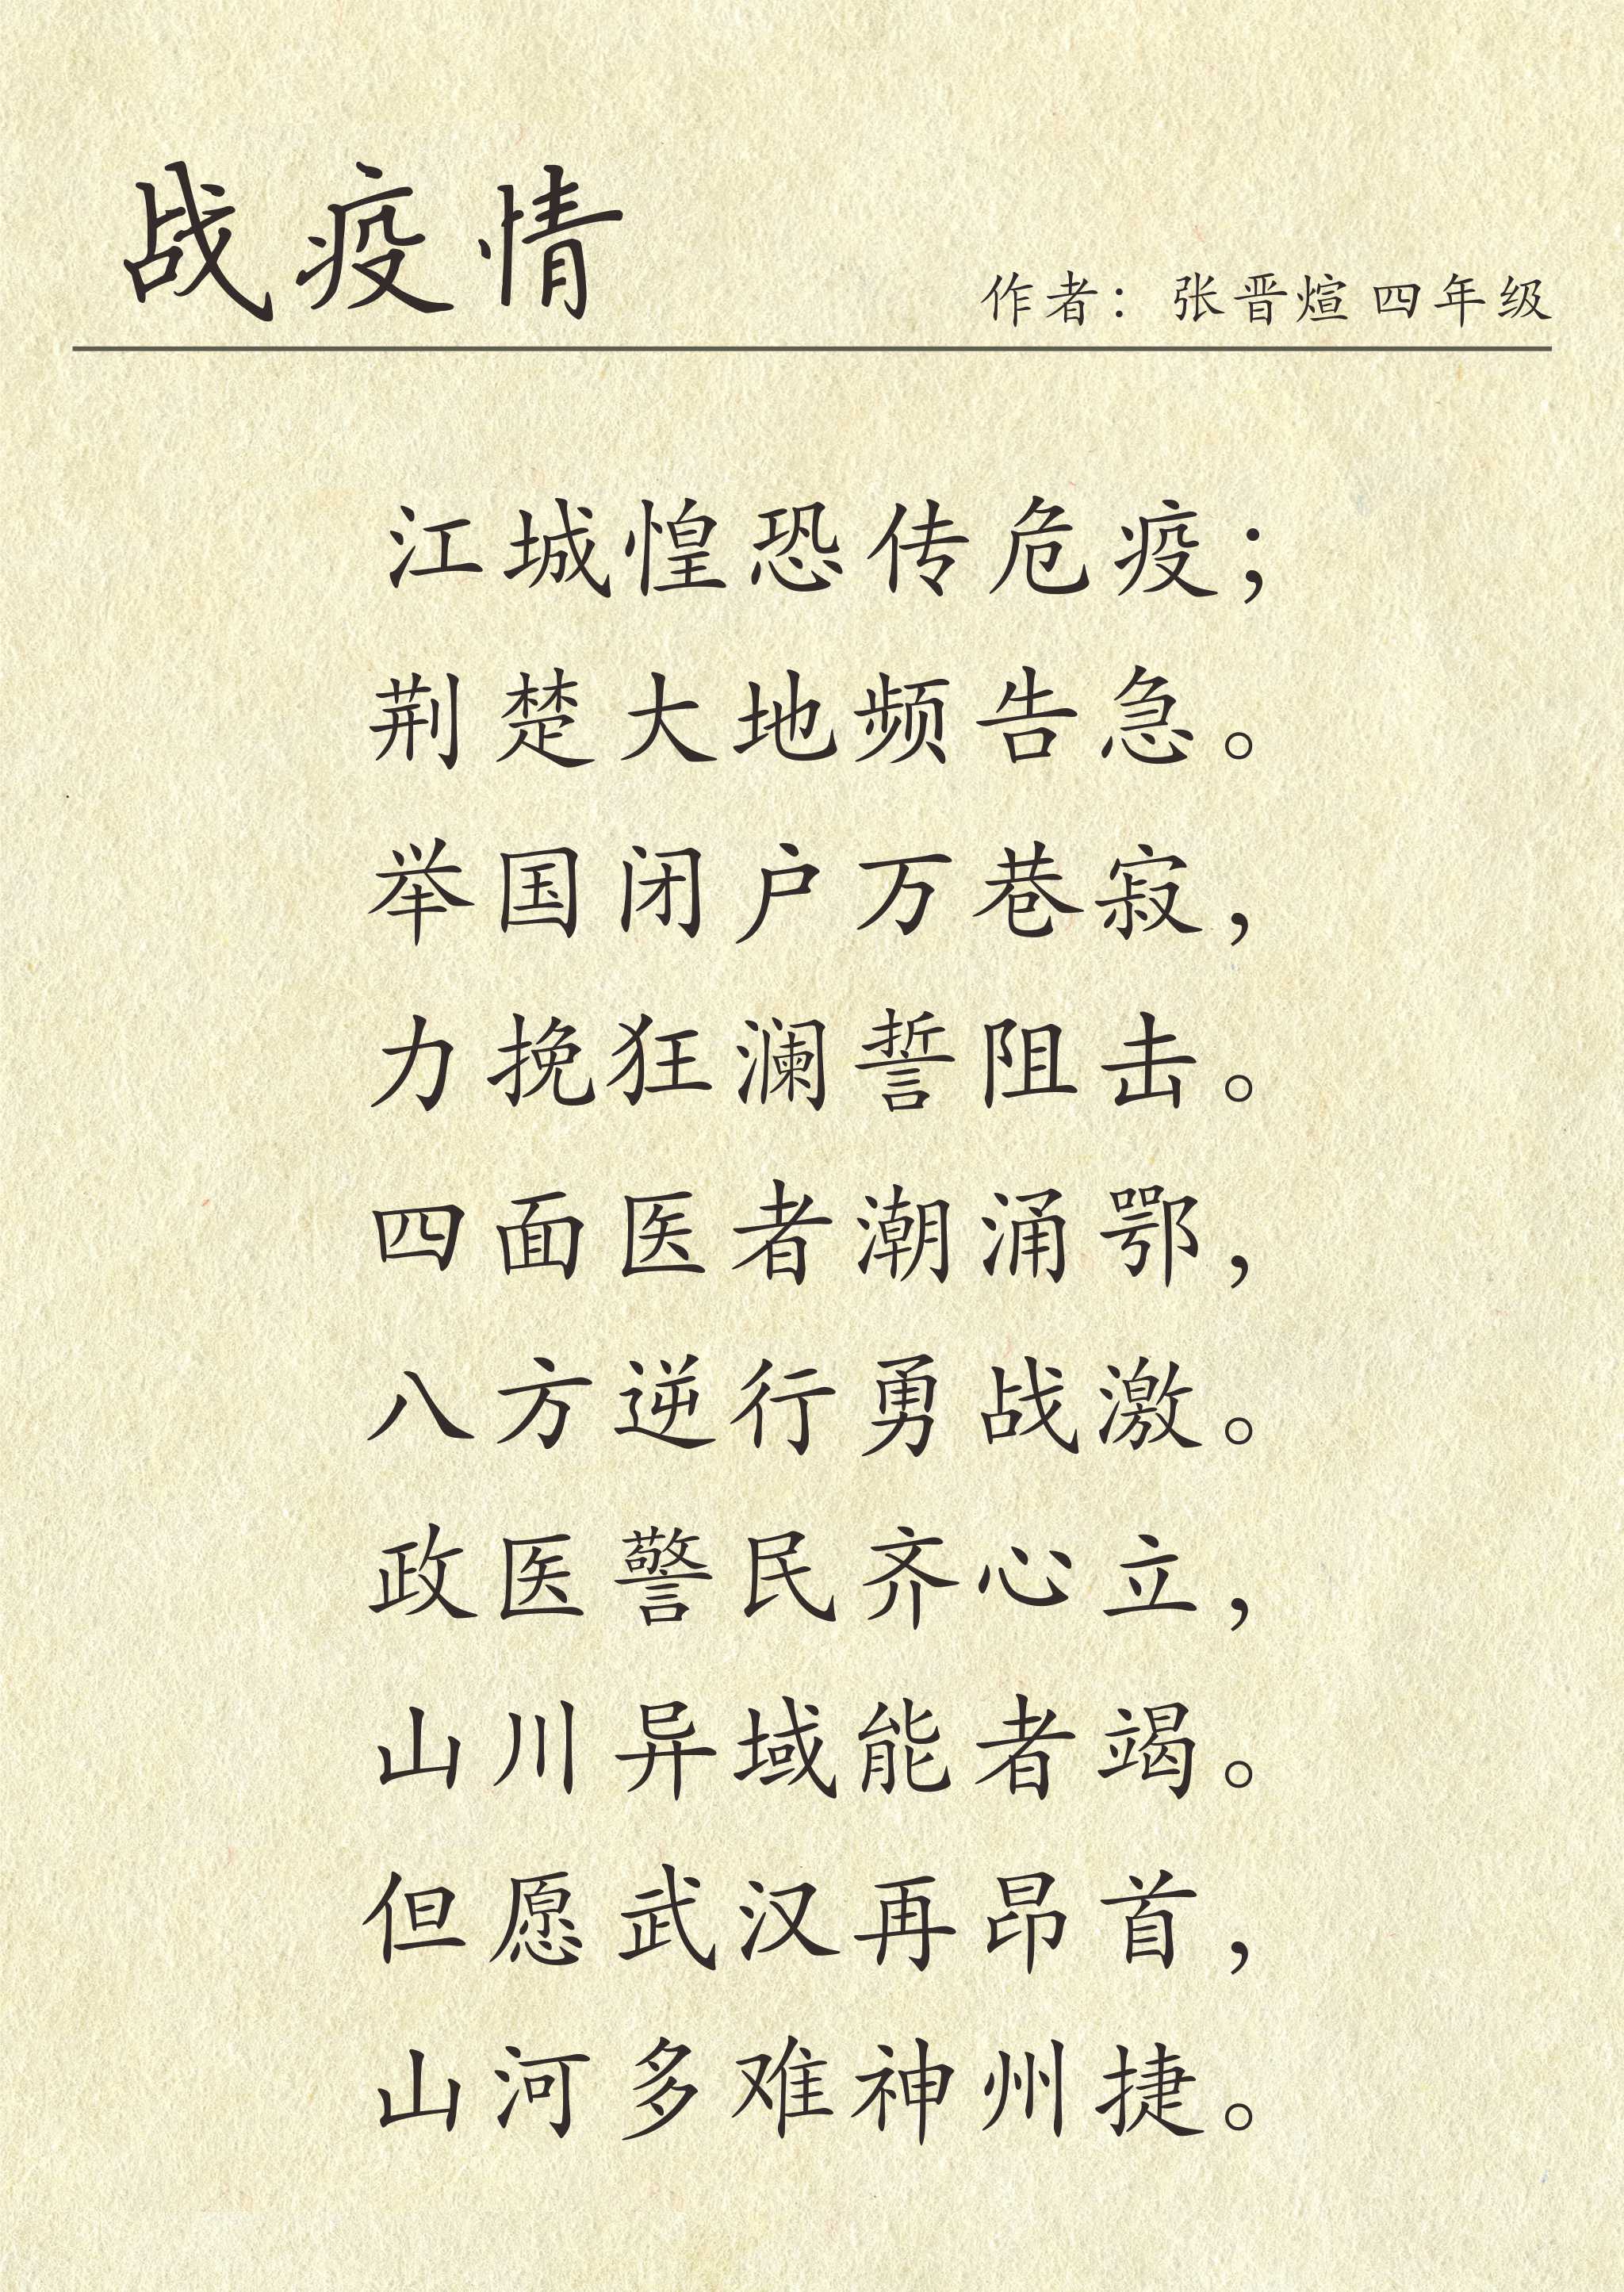 战疫情
作者：张晋煊 四年级
江城惶恐传危疫；
荆楚大地频告急。
举国闭户万巷寂，
力挽狂澜誓阻击。
四面医者潮涌鄂，
八方逆行勇战激。
政医警民齐心立，
山川异域能者竭。
但愿武汉再昂首，
山河多难神州捷。